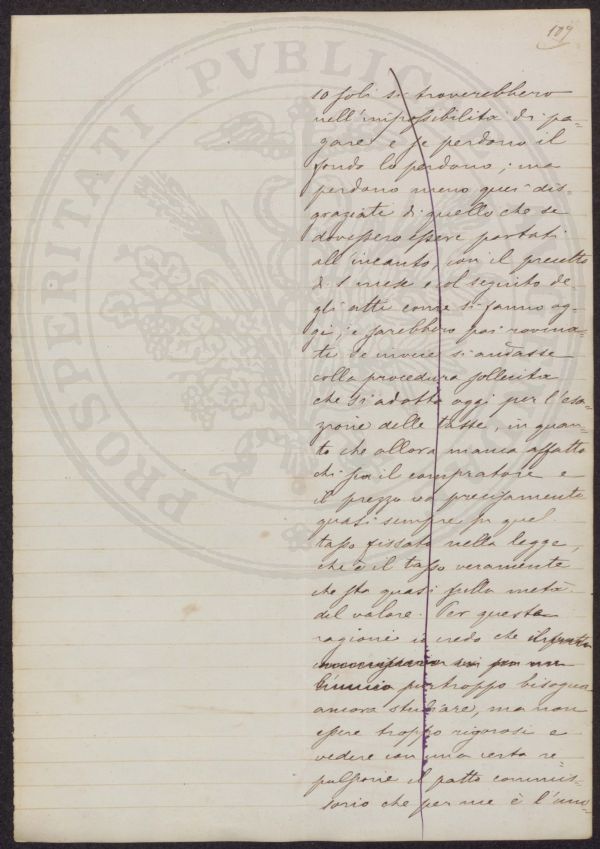 109
PROSPERITATI PVBLIC
io soli si troverebbero
nell'impossibilità di pa-
gare e se perdono il
fondo lo perdono; ma
perdono meno quei dis-
graziati di quello che se
dovessero essere portati
all'incanto con il precetto
di 1 mese e al seguito de-
gli atti come si fanno og-
gi, e sarebbero poi rovina-
ti se invece si andasse
colla procedura sollecita
che si adotta oggi per l'esa-
zione delle tasse, in quan-
to che allora manca affatto
di più il compratore e
il prezzo va precisamente
quasi sempre in quel
tasso fissato nella legge,
che è il tasso veramente
che sta quasi sulla metà
del valore. Per queste
ragioni io credo che
purtroppo bisogna
ancora studiare, ma non
essere troppo rigorosi e
vedere con una certa re-
pulsione il patto commis-
sorio che per me è l'uni-